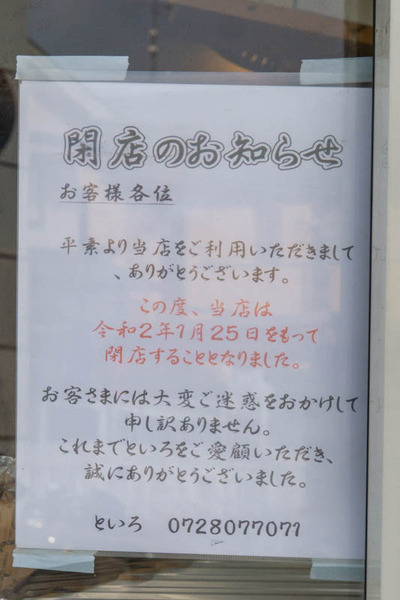 閉店のお知らせ
お客様各位
平素より当店をご利用いただきまして
、ありがとうございます。
この度、当店は
令和2年1月25日をもって
閉店することとなりました。
お客さまには大変ご迷惑をおかけして
申し訳ありません。
これまでといろをご愛顧いただき、
誠にありがとうございました。
といろ 0728077071